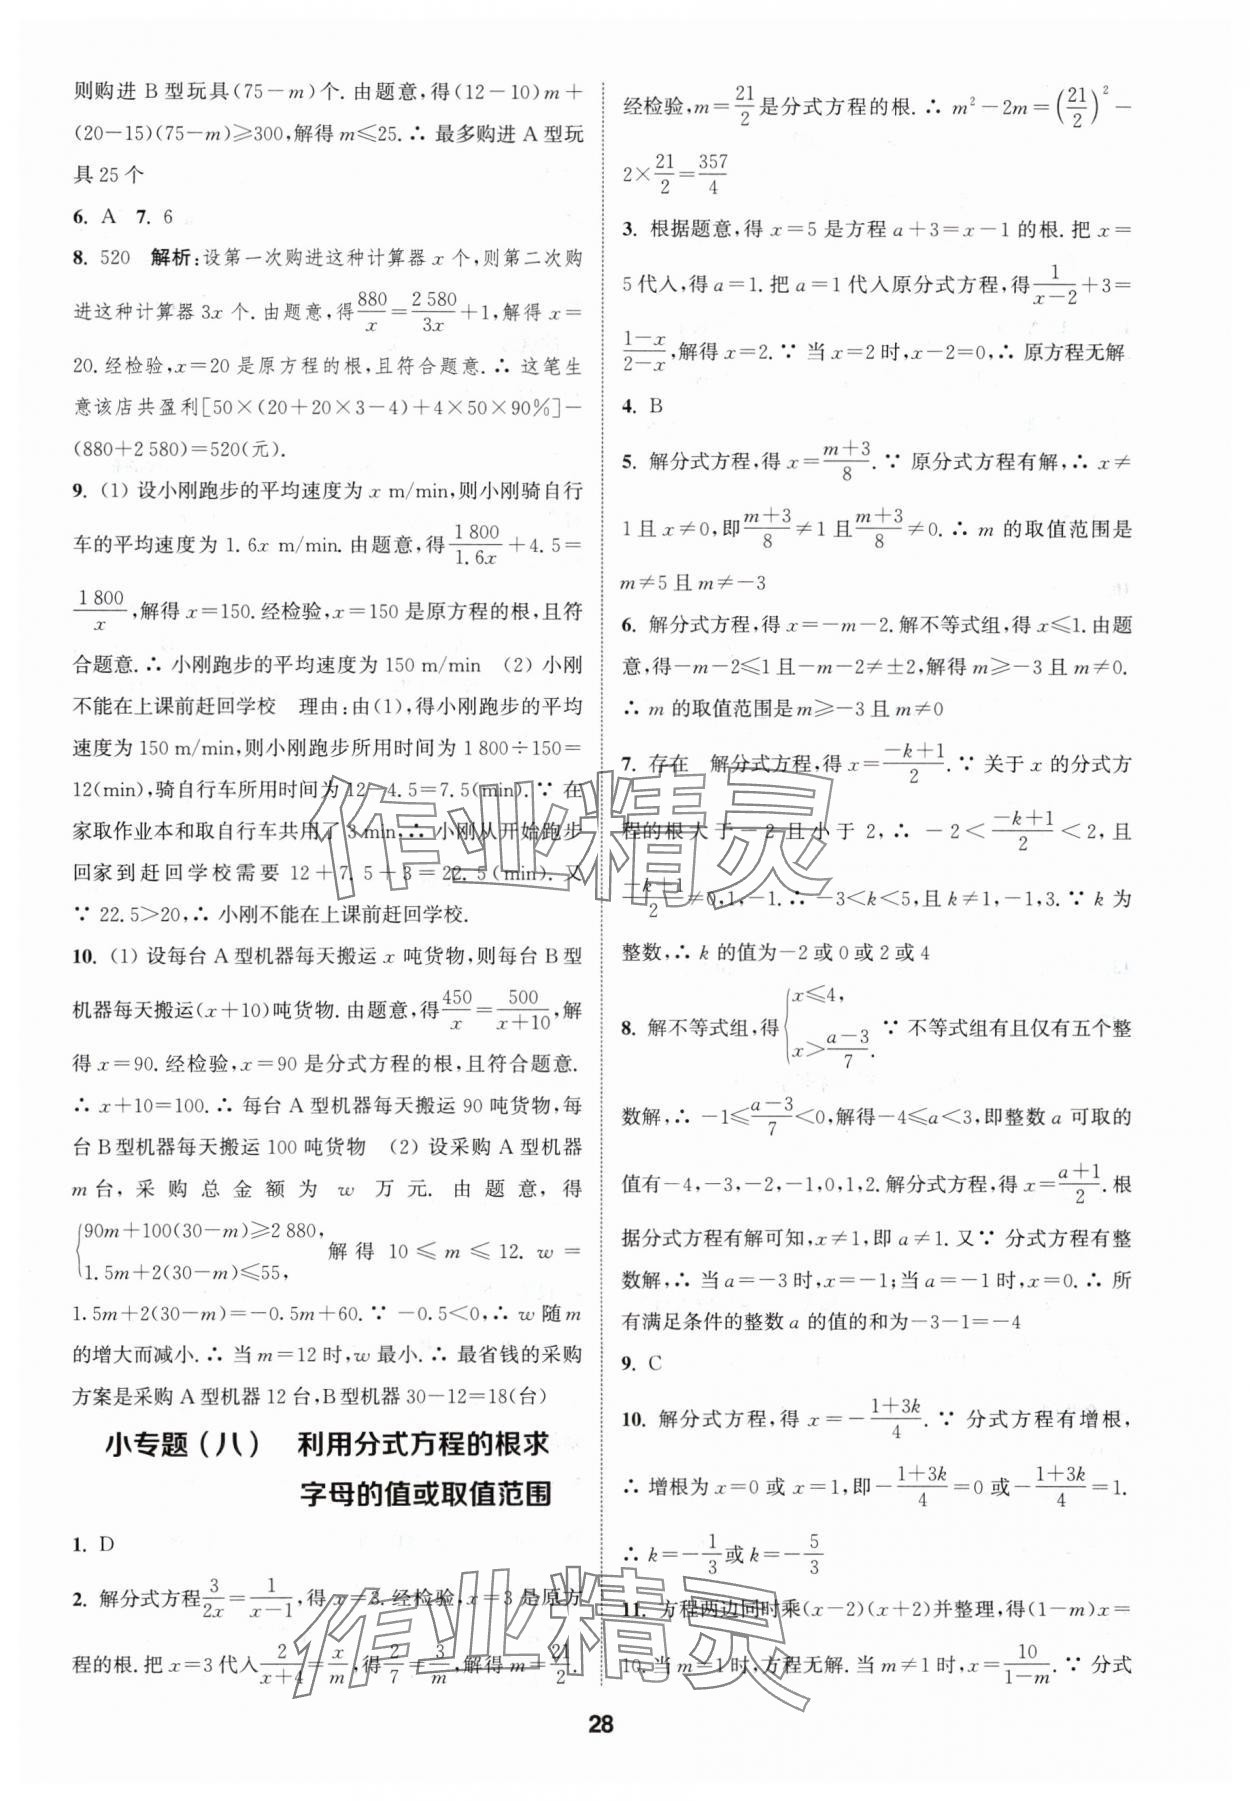 则购进 B 型玩具(75－m)个. 由题意,得(12－10)m＋
(20－15)(75－m)≥300,解得 m≤25. ∴ 最多购进 A 型玩
具 25 个
6. A 7. 6
8. 520 解析:设第一次购进这种计算器 x 个,则第二次购
进这种计算器 3x 个. 由题意,得880/x＝2 580/3x＋1,解得 x＝
20. 经检验,x＝20 是原方程的根,且符合题意. ∴ 这笔生
意该店共盈利[50×(20＋20×3－4)＋4×50×90%]－
(880＋2 580)＝520(元).
9. (1) 设小刚跑步的平均速度为 x m/min,则小刚骑自行
车的平均速度为 1. 6x m/min. 由题意,得1 800/1. 6x＋4. 5＝
1 800/x,解得 x＝150. 经检验,x＝150 是原方程的根,且符
合题意. ∴ 小刚跑步的平均速度为 150 m/min (2) 小刚
不能在上课前赶回学校 理由:由(1),得小刚跑步的平均
速度为 150 m/min,则小刚跑步所用时间为 1 800÷150＝
12(min),骑自行车所用时间为 12－4. 5＝7. 5(min). ∵ 在
家取作业本和取自行车共用了 3 min,∴ 小刚从开始跑步
回家到赶回学校需要 12＋7. 5＋3＝22. 5(min). 又
∵ 22. 5＞20,∴ 小刚不能在上课前赶回学校.
10. (1) 设每台 A 型机器每天搬运 x 吨货物,则每台 B 型
机器每天搬运(x＋10)吨货物. 由题意,得450/x＝500/(x＋10),解
得 x＝90. 经检验,x＝90 是分式方程的根,且符合题意.
∴ x＋10＝100. ∴ 每台 A 型机器每天搬运 90 吨货物,每
台 B 型机器每天搬运 100 吨货物 (2) 设采购 A 型机器
m 台,采购总金额为 w 万元. 由题意,得
{90m＋100(30－m)≥2 880,
1. 5m＋2(30－m)≤55, 解得 10≤m≤12. w＝
1. 5m＋2(30－m)＝－0. 5m＋60. ∵ －0. 5＜0,∴ w 随 m
的增大而减小. ∴ 当 m＝12 时,w 最小. ∴ 最省钱的采购
方案是采购 A 型机器 12 台,B 型机器 30－12＝18(台)
小专题(八) 利用分式方程的根求
字母的值或取值范围
1. D
2. 解分式方程3/2x＝1/(x－1),得 x＝3. 经检验,x＝3 是原方
程的根. 把 x＝3 代入2/(x＋4)＝x/m,得2/7＝3/m,解得 m＝21/2.
经检验,m＝21/2是分式方程的根. ∴ m²－2m＝(21/2)²－
2×21/2＝357/4
3. 根据题意,得 x＝5 是方程 a＋3＝x－1 的根. 把 x＝
5 代入,得 a＝1. 把 a＝1 代入原分式方程,得1/(x－2)＋3＝
(1－x)/(2－x),解得 x＝2. ∵ 当 x＝2 时,x－2＝0,∴ 原方程无解
4. B
5. 解分式方程,得 x＝(m＋3)/8. ∵ 原分式方程有解,∴ x≠
1 且 x≠0,即(m＋3)/8≠1 且(m＋3)/8≠0. ∴ m 的取值范围是
m≠5 且 m≠－3
6. 解分式方程,得 x＝－m－2. 解不等式组,得 x≤1. 由题
意,得－m－2≤1 且－m－2≠±2,解得 m≥－3 且 m≠0.
∴ m 的取值范围是 m≥－3 且 m≠0
7. 存在 解分式方程,得 x＝(－k＋1)/2. ∵ 关于 x 的分式方
程的根大于－2 且小于 2,∴ －2＜(－k＋1)/2＜2,且
(－k＋1)/2≠0,1,－1. ∴ －3＜k＜5,且 k≠1,－1,3. ∵ k 为
整数,∴ k 的值为－2 或 0 或 2 或 4
8. 解不等式组,得{x≤4, x＞(a－3)/7. ∵ 不等式组有且仅有五个整
数解,∴ －1≤(a－3)/7＜0,解得－4≤a＜3,即整数 a 可取的
值有－4,－3,－2,－1,0,1,2. 解分式方程,得 x＝(a＋1)/2. 根
据分式方程有解可知,x≠1,即 a≠1. 又∵ 分式方程有整
数解,∴ 当 a＝－3 时,x＝－1;当 a＝－1 时,x＝0. ∴ 所
有满足条件的整数 a 的值的和为－3－1＝－4
9. C
10. 解分式方程,得 x＝－(1＋3k)/4. ∵ 分式方程有增根,
∴ 增根为 x＝0 或 x＝1,即－(1＋3k)/4＝0 或－(1＋3k)/4＝1.
∴ k＝－1/3或 k＝－5/3
11. 方程两边同时乘(x－2)(x＋2)并整理,得(1－m)x＝
10. 当 m＝1 时,方程无解. 当 m≠1 时,x＝10/(1－m). ∵ 分式
28
作业精灵
作业精灵